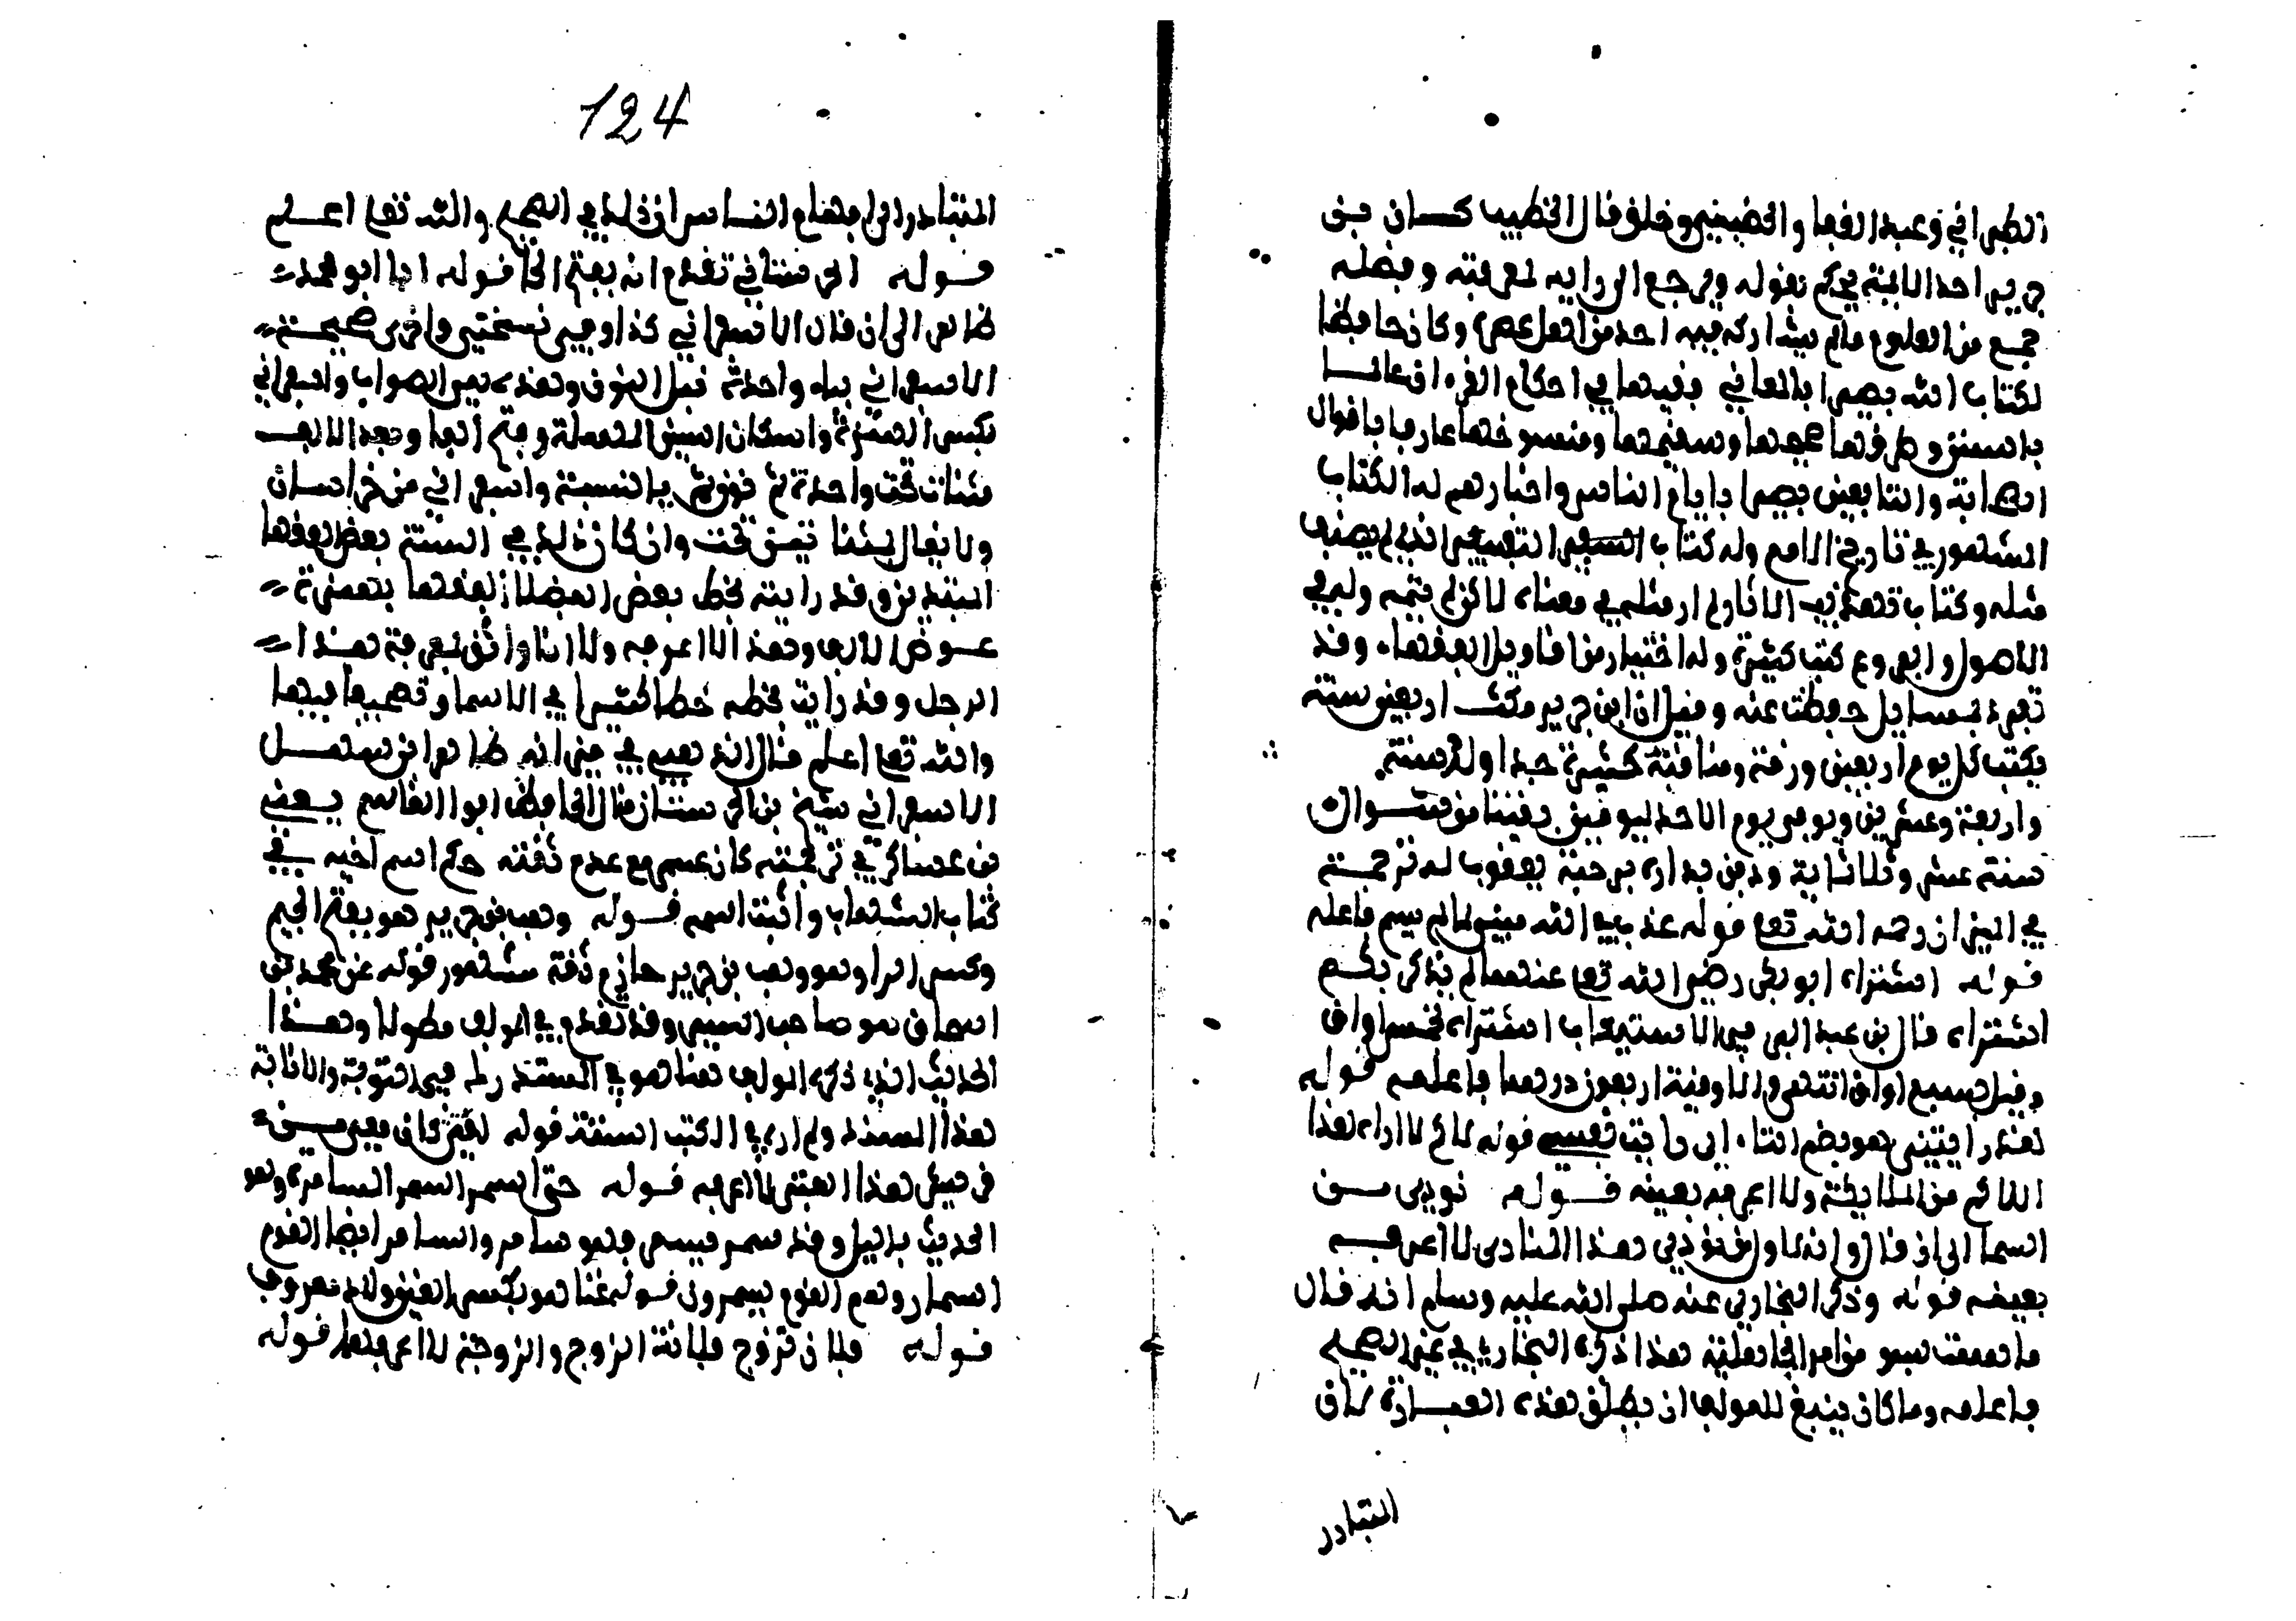 الطبراني وعبد الغفار الحضيني وخلق قال الخطيب كان بن
جرير احد الايمة يحكم بقوله ويرجع الى رايه لمعرفته وفضله
جمع من العلوم ما لم يشاركه فيه احد من اهل عصره وكان حافظا
لكتاب الله بصيرا بالمعاني فقيها في احكام القرءان عالما
بالسنن وطرقها صحيحها وسقيمها ومنسوخها عارفا باقوال
الصحابة والتابعين بصيرا بايام الناس واخبارهم له الكتاب
المشهور في تاريخ الامم وله كتاب التفسير الذي لم يصنف
مثله وكتاب تهذيب الاثار لم ار مثله في معناه لاكن لم يتمه وله في
الاصول والفروع كتب كثيرة وله اختيار من اقاويل الفقهاء وقد
تفرد بمسايل حفظت عنه وقيل ان ابن جرير مكث اربعين سنة
يكتب كل يوم اربعين ورقة ومناقبه كثيرة جدا ولد سنة
واربعة وعشرين وتوفي يوم الاحد ليومين بقيتا من شوال
سنة عشر وثلاثماية ودفن بداره برحبة يعقوب له ترجمة
في الميزان رحمه الله تعا قوله عذب في الله مبني لما لم يسم فاعله
قوله اشتراه ابو بكر رضي الله تعا عنهما لم يذكر بكم
اشتراه قال بن عبد البر في الاستيعاب اشتراه بخمس اواق
وقيل بسبع اواق انتهى والاوقية اربعون درهما فاعلمه قوله
لقد رايتني هو بضم التاء اي رايت نفسي قوله قايم لا اراه هذا
القايم من الملايكة ولا اعرفه بعينه قوله نودي من
السما الى ان قال وانه لما نودي هذا المنادي لا اعرفه
بعينه قوله وذكر البخاري عنه صلى الله عليه وسلم انه قال
ما هممت بسو من امر الجاهلية هذا ذكره البخاري في غير الصحيح
فاعلمه وما كان ينبغي للمولف ان يطلق هذه العبارة لان
المتبادر
124
المتبادر الى افهام الناس ان ذلك في الصحيح والله تعا اعلم
قوله الحرستاني تقدم انه بفتح الحا قوله انا ابو محمد
طاهر الى ان قال الاسفراني كذا وفي نسختي واخرى صحيحة
الاسفراني بياء واحدة قبل النون وهذه هي الصواب واسفراني
بكسر الهمزة واسكان السين المهملة وفتح الفا وبعد الالف
مثناة تحت واحدة ثم نون ثم ياء النسبة واسفراني من خراسان
ولا يقال بمثناتين تحت وان كان ذلك في السنة بعض الفقها
المتقدمين وقد رايته بخط بعض الفضلا الفقها بهمزة
عوض الالف وهذا لا اعرفه ولا انا واثق بمعرفة هذا
الرجل وقد رايت بخطه خطا كثيرا في الاسما وتصحيفا فيها
والله تعا اعلم قال الذهبي في ميزانه طاهر ابن سهل
الاسفراني شيخ بن الحرستاني قال الحافظ ابو القاسم يعني
بن عساكر في ترجمته كان عسر مع عدم ثقته حك اسم اخيه في
كتاب الشهاب واثبت اسمه قوله وهب بن جرير هو بفتح الجيم
وكسر الرا وهو وهب بن جرير حازم ثقة مشهور قوله عن محمد بن
اسحاق هو صاحب السير وقد تقدم في المولف مطولا وهذا
الحديث الذي ذكره المولف هنا هو في المستدرك في التوبة والانابة
هذا السند ولم اره في الكتب الستة قوله لفتى كان معي من
قريش هذا الفتى لا اعرفه قوله حتى اسمر السمر المسامرة وهو
الحديث بالليل وقد سمر يسمر فهو سامر والسامر ايضا القوم
السمار وهم القوم يسمرون قوله غنا هو بكسر الغين والمد معروف
قوله فلان تزوج فلانة الزوج والزوجة لا اعرفهما قوله